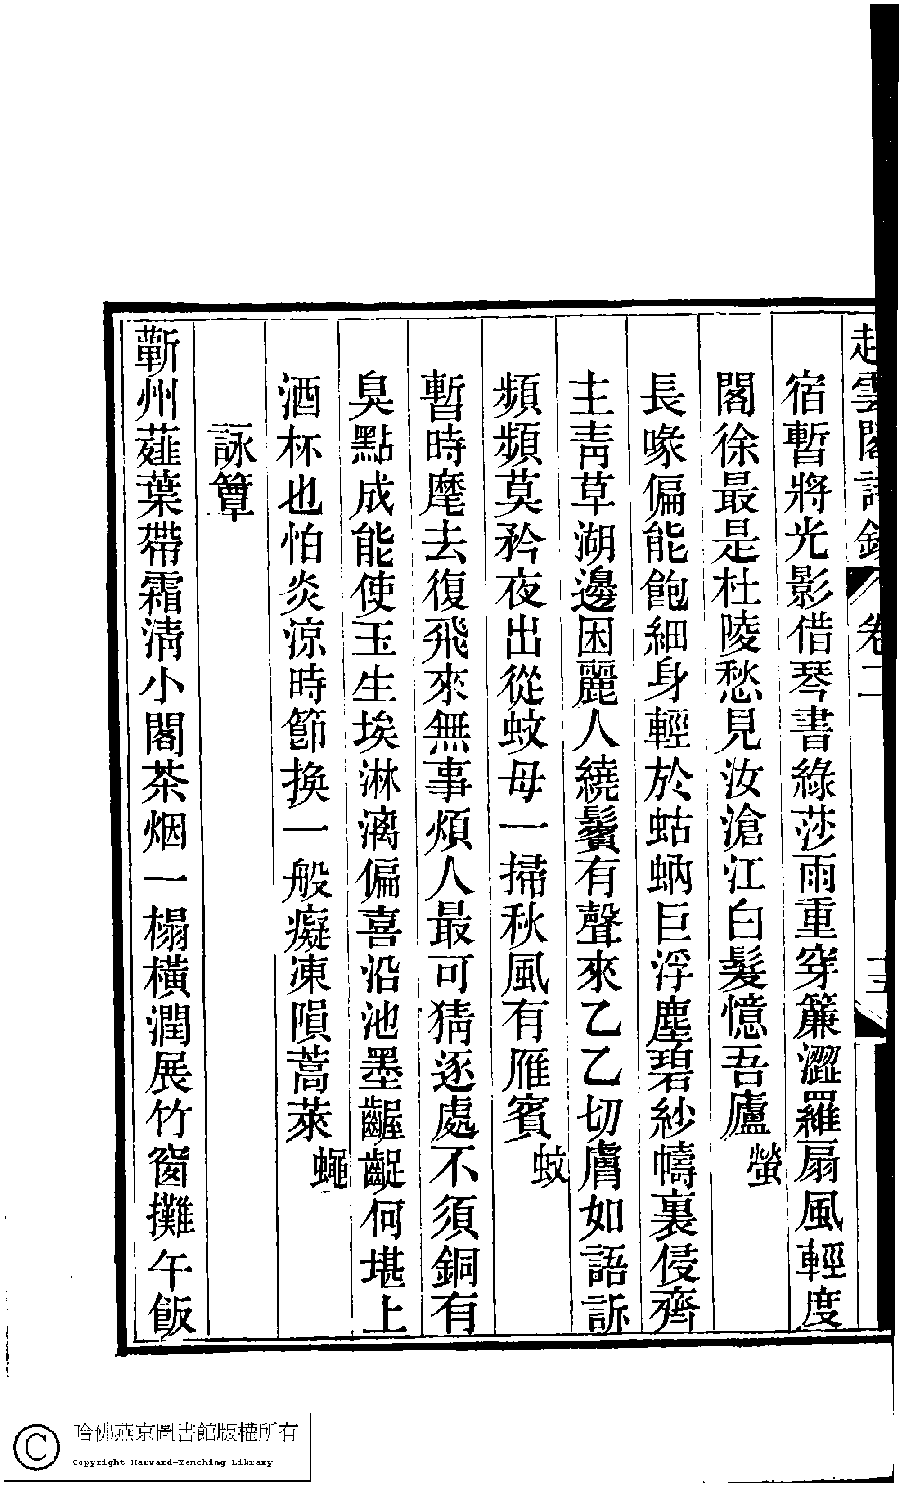 趙雲閣詩鈔 卷二 十三
宿暫將光影借琴書綠莎雨重穿簾澀羅扇風輕度
閣徐最是杜陵愁見汝滄江白髮憶吾廬 螢
長喙偏能飽細身輕於蛄蜹巨浮塵碧紗幬裏侵齊
主靑草湖邊困麗人繞鬢有聲來乙乙切膚如語訴
頻頻莫矜夜出從蚊母一掃秋風有雁賓 蚊
暫時麾去復飛來無事煩人最可猜逐處不須銅有
臭點成能使玉生埃淋漓偏喜沿池墨齷齪何堪上
酒杯也怕炎涼時節換一般癡凍隕蒿萊 蠅
詠簟
蘄州薤葉帶霜淸小閣茶烟一榻橫潤展竹窗攤午飯
哈佛燕京圖書館版權所有
Copyright Harvard-Yenching Library